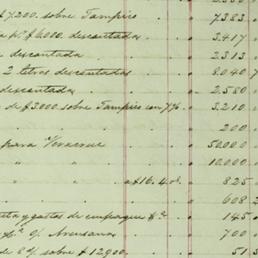 $7,200. sobre Tampico " 7,383.
a pr $6000. descontada " 3,417
descontada " 2,313
2 letras descontadas " 8,040
descontada " 2,580
de $3000. sobre Tampico con 7% " 3,210
" 200.
para Veracruz " 50000
" " " 10,000.
a $16. 4 " 825
" 608
y gastos de empaque &a " 145
" 700
de 8% sobre $12900. " 51